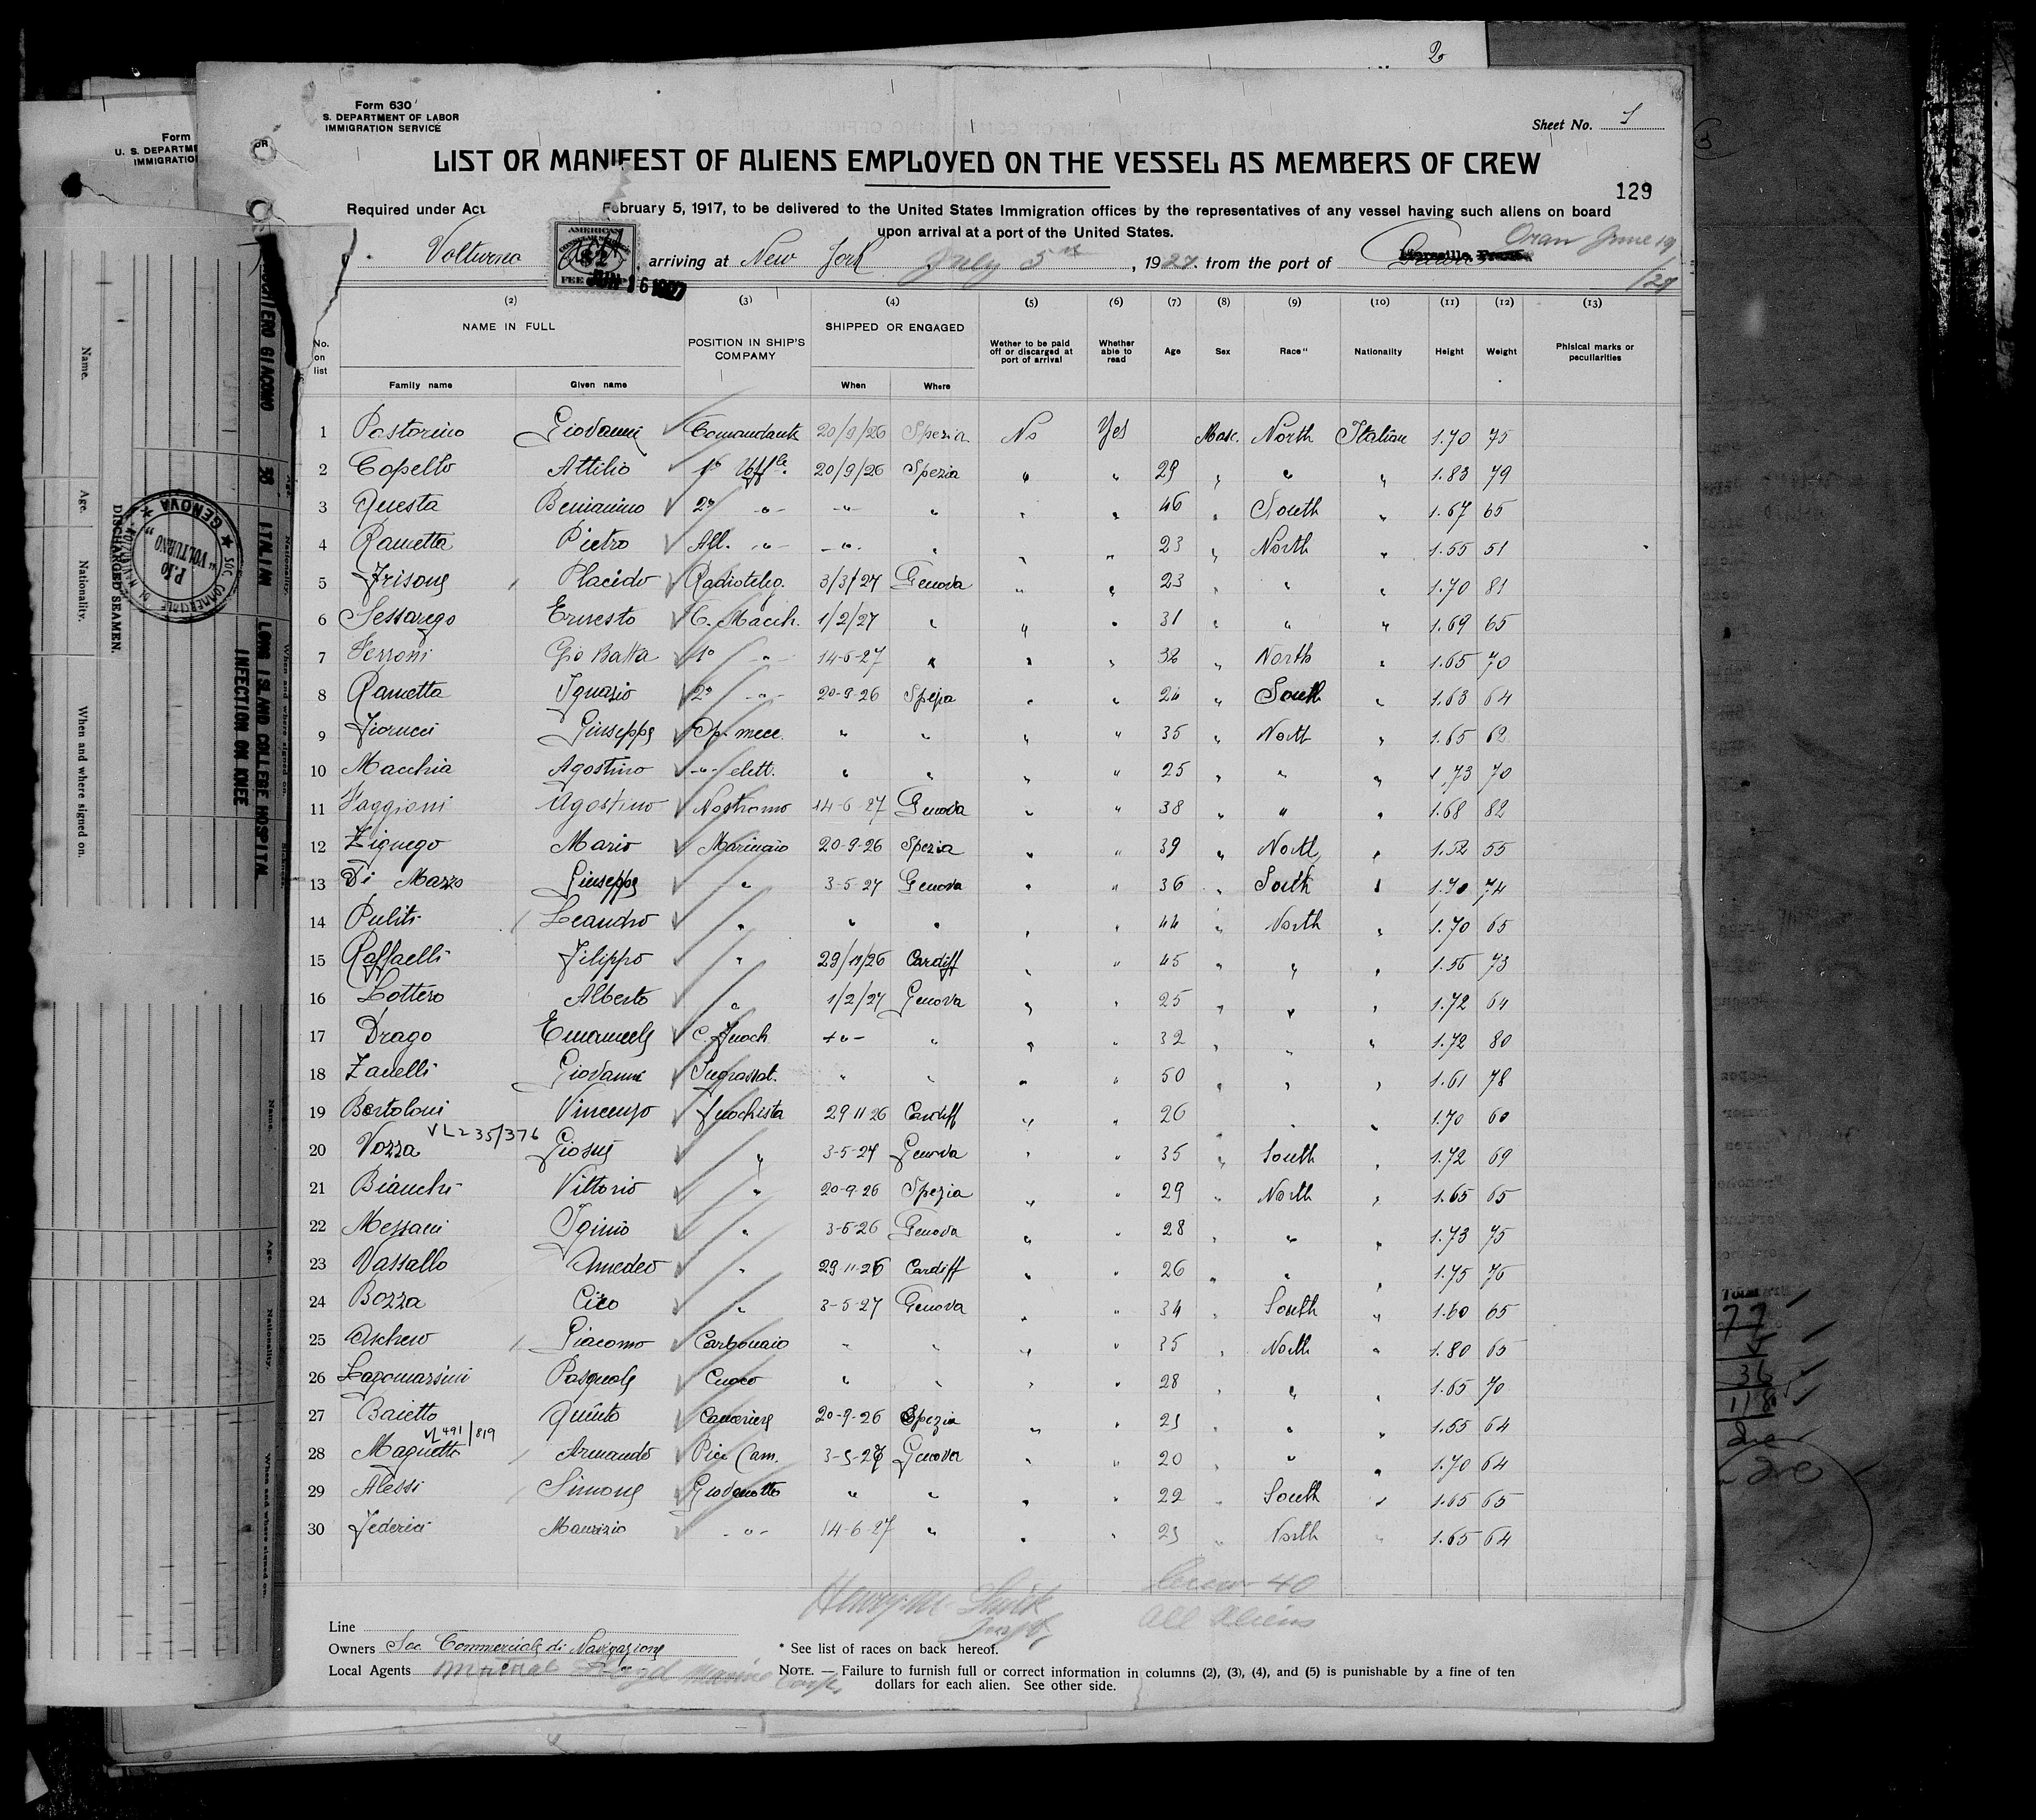 2
Form 630
S. DEPARTMENT OF LABOR
IMMIGRATION SERVICE
Sheet No. 1
LIST OR MANIFEST OF ALIENS EMPLOYED ON THE VESSEL AS MEMBERS OF CREW
129
Required under Act February 5, 1917, to be delivered to the United States Immigration offices by the representatives of any vessel having such aliens on board
upon arrival at a port of the United States.
Oran June 19
/27
Volturno, arriving at New York July 5th, 1927. from the port of
AMERICAN
FEE
JUN 16 1927
(2) (3) (4) (5) (6) (7) (8) (9) (10) (11) (12) (13)
No. on list
NAME IN FULL
Family name Given name
POSITION IN SHIP'S COMPANY
SHIPPED OR ENGAGED
When Where
Wether to be paid off or discarged at port of arrival
Whether able to read
Age Sex Race" Nationality Height Weight
Phisical marks or peculiarities
1 Pastorino Giovanni Comandante 20/9/26 Spezia No Yes Masc. North Italian 1.70 75
2 Capello Attilio 1º Uffle. 20/9/26 Spezia " " 29 " " " 1.83 79
3 Questa Beniamino 2º -"- -"- " " " 46 " South " 1.67 65
4 Rametta Pietro All. -"- -"- " " " 23 " North " 1.55 51
5 Frisone Placido Radioteleg. 3/3/27 Genova " " 23 " " " 1.70 81
6 Sessarego Ernesto C. Macch. 1/2/27 " " " 31 " " " 1.69 65
7 Ferroni Gio Batta 1º -"- 14-6-27 " " " 32 " North " 1.65 70
8 Rametta Ignazio 2º -"- 20-9-26 Spezia " " 24 " South " 1.63 64
9 Fiorucci Giuseppe Op. mecc. " " " " 35 " North " 1.65 62
10 Macchia Agostino -"- elett. " " " " 25 " " " 1.73 70
11 Faggioni Agostino Nostromo 14-6-27 Genova " " 38 " " " 1.68 82
12 Zignego Mario Marinaio 20-9-26 Spezia " " 39 " North " 1.52 55
13 Di Mazzo Giuseppe " 3-5-27 Genova " " 36 " South " 1.70 74
14 Puliti Leandro " " " " " 44 " North " 1.70 65
15 Raffaelli Filippo " 29/11/26 Cardiff " " 45 " " " 1.56 73
16 Lottero Alberto " 1/2/27 Genova " " 25 " " " 1.72 64
17 Drago Emanuele C. Fuoch. -"- " " " 32 " " " 1.72 80
18 Zanelli Giovanni Ingrassat. " " " " 50 " " " 1.61 78
19 Bertoloni Vincenzo fuochista 29 11 26 Cardiff " " 26 " " " 1.70 60
VL 235/376
20 Vozza Giosuè " 3-5-27 Genova " " 35 " South " 1.72 69
21 Bianchi Vittorio " 20-9-26 Spezia " " 29 " North " 1.65 65
22 Messani Iginio " 3-5-26 Genova " " 28 " " " 1.73 75
23 Vassallo Amedeo " 29-11-26 Cardiff " " 26 " " " 1.75 76
24 Bozza Ciro " 3-5-27 Genova " " 34 " South " 1.60 65
25 Aschero Giacomo Carbonaio " " " " 35 " North " 1.80 65
26 Lagomarsini Pasquale Cuoco " " " " 28 " " " 1.65 70
27 Baietto Quinto Cameriere 20-9-26 Spezia " " 21 " " " 1.55 64
VL 491/819
28 Magnetto Armando Pic. Cam. 3-5-27 Genova " " 20 " " " 1.70 64
29 Alessi Simone Giovanotto " " " " 22 " South " 1.65 65
30 Federici Maurizio -"- 14-6-27 " " " 21 " North " 1.65 64
Crew 40
All Aliens
Henry M.
Line
Owners Soc Commerciale di Navigazione
Local Agents
* See list of races on back hereof.
NOTE. — Failure to furnish full or correct information in columns (2), (3), (4), and (5) is punishable by a fine of ten
dollars for each alien. See other side.
Form
U. S. DEPARTME
IMMIGRATIO
Name. Age. Nationality. When and where signed on.
DISCHARGED SEAMEN.
GIACOMO 38 ITALIAN LONG ISLAND COLLEGE HOSPITAL
INFECTION ON KNEE
SOC. COMMERCIALE DI NAVIGAZIONE
★ GENOVA ★
P.fo
"VOLTURNO"
Name. Age. Nationality. When and where signed on.
77
5
36
118